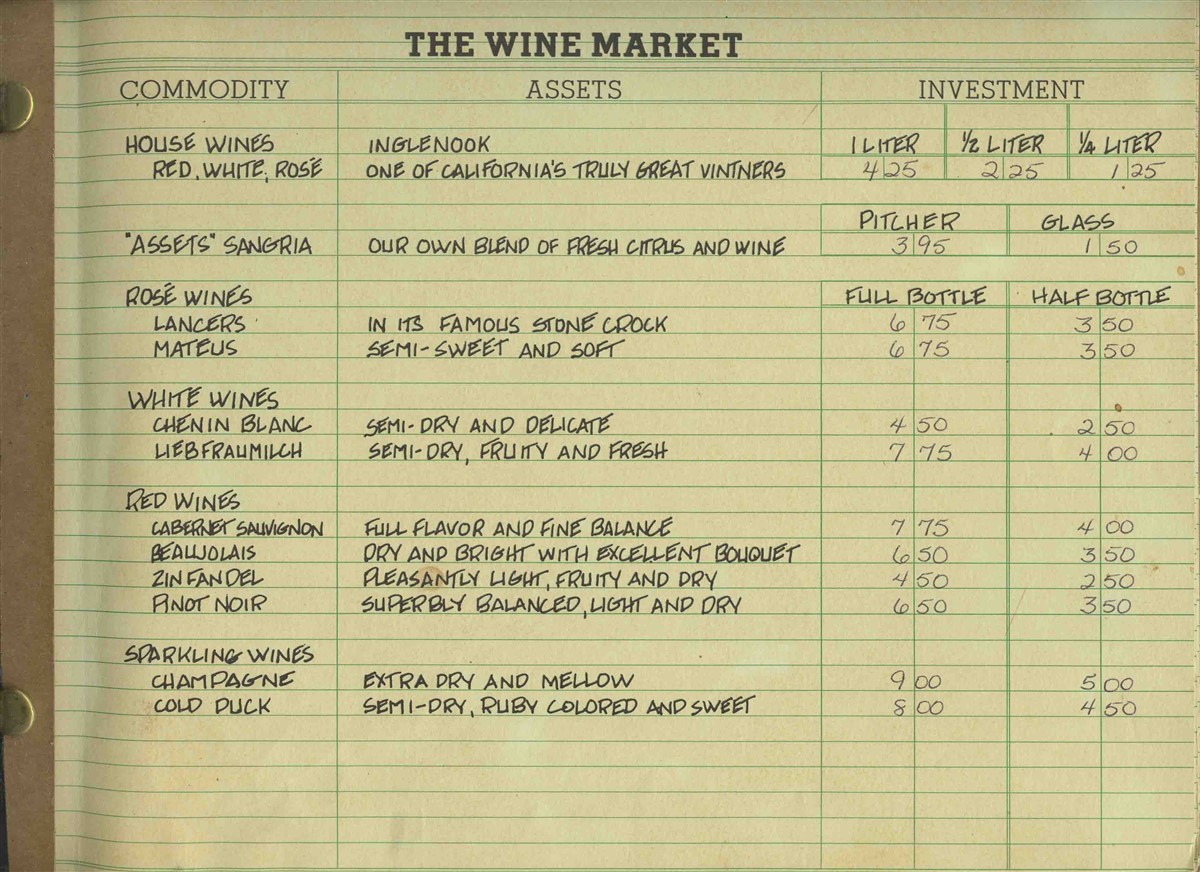 THE WINE MARKET
COMMODITY ASSETS INVESTMENT
HOUSE WINES INGLENOOK 1 LITER 1/2 LITER 1/4 LITER
RED, WHITE, ROSÉ ONE OF CALIFORNIA'S TRULY GREAT VINTNERS 4 25 2 25 1 25
PITCHER GLASS
"ASSETS" SANGRIA OUR OWN BLEND OF FRESH CITRUS AND WINE 3 95 1 50
ROSÉ WINES FULL BOTTLE HALF BOTTLE
LANCERS IN ITS FAMOUS STONE CROCK 6 75 3 50
MATEUS SEMI-SWEET AND SOFT 6 75 3 50
WHITE WINES
CHENIN BLANC SEMI-DRY AND DELICATE 4 50 2 50
LIEBFRAUMILCH SEMI-DRY, FRUITY AND FRESH 7 75 4 00
RED WINES
CABERNET SAUVIGNON FULL FLAVOR AND FINE BALANCE 7 75 4 00
BEAUJOLAIS DRY AND BRIGHT WITH EXCELLENT BOUQUET 6 50 3 50
ZINFANDEL PLEASANTLY LIGHT, FRUITY AND DRY 4 50 2 50
PINOT NOIR SUPERBLY BALANCED, LIGHT AND DRY 6 50 3 50
SPARKLING WINES
CHAMPAGNE EXTRA DRY AND MELLOW 9 00 5 00
COLD DUCK SEMI-DRY, RUBY COLORED AND SWEET 8 00 4 50